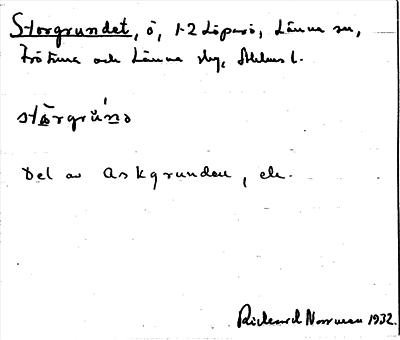 Storgrundet, ö, 1-2 Löparö, Länna sn,
Frötuna och Länna skg, Sthlms l.
stòrgrú̆nd
Del av Askgrunden, ek.
Rickard Norrman 1932.